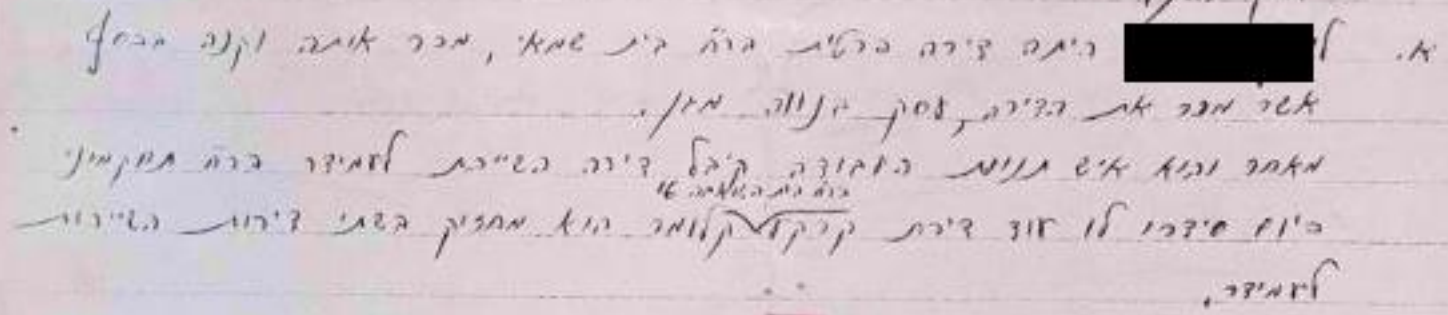 א. ל היתה דירה פרטית ברח' בית שמאי, מכר אותה וקנה בכסף
אשר מכר את הדירה, עסק בנווה מגן.
מאחר והוא איש תנועת העבודה קיבל דירה השייכת לעמידר ברח'
ברח'
היום סידרו לו עוד דירת קרקע קלומר הוא מחזיק בשתי דירות השייכות
לעמידר.